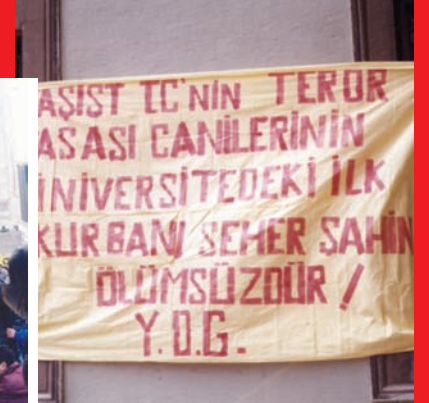 AŞIST TC'NİN TEROR
ASASI CANİLERİNİN
NİVERSİTEDEKİ İLK
KURBANI SEHER ŞAHİN
ÖLÜMSÜZDÜR !
Y.D.G.